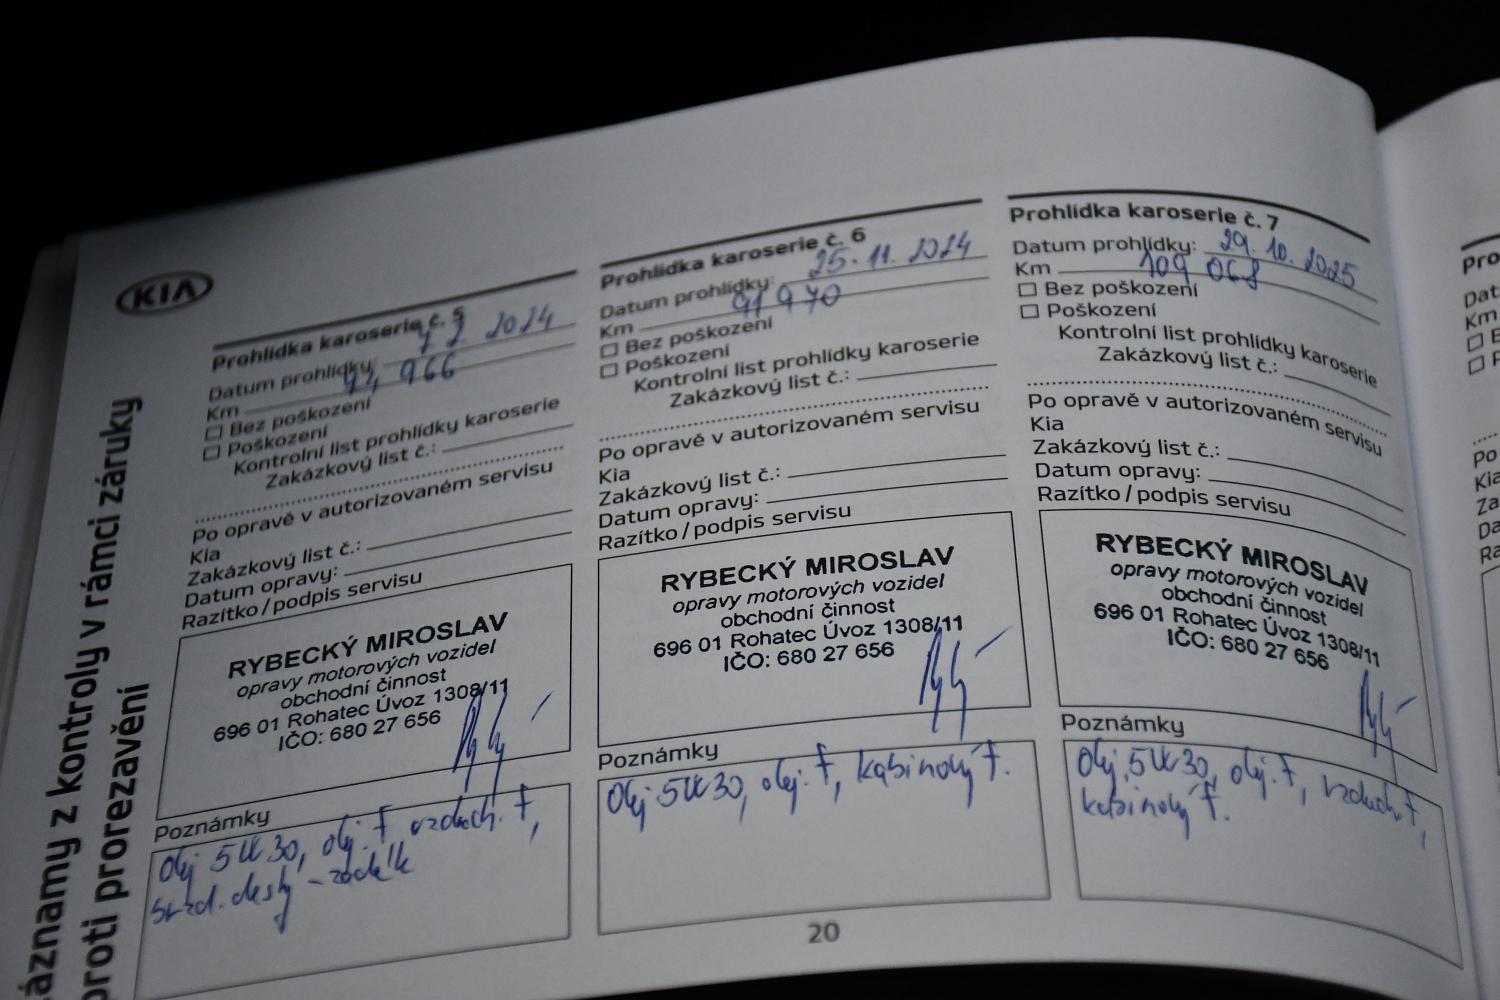 KIA
áznamy z kontroly v rámci záruky
proti prorezavění
Prohlídka karoserie č. 5
Datum prohlídky: 7 2 2024
Km 74 966
Bez poškození
Poškození
Kontrolní list prohlídky karoserie
Zakázkový list č.:
Po opravě v autorizovaném servisu
Kia
Zakázkový list č.:
Datum opravy:
Razítko / podpis servisu
RYBECKÝ MIROSLAV
opravy motorových vozidel
obchodní činnost
696 01 Rohatec Úvoz 1308/11
IČO: 680 27 656
Poznámky
Olej 5W30, olej. f, vzduch. f,
brzd. desky - zadek
Prohlídka karoserie č. 6
Datum prohlídky: 25. 11. 2024
Km 91 970
Bez poškození
Poškození
Kontrolní list prohlídky karoserie
Zakázkový list č.:
Po opravě v autorizovaném servisu
Kia
Zakázkový list č.:
Datum opravy:
Razítko / podpis servisu
RYBECKÝ MIROSLAV
opravy motorových vozidel
obchodní činnost
696 01 Rohatec Úvoz 1308/11
IČO: 680 27 656
Poznámky
Olej 5W30, olej. f, kabinový f.
Prohlídka karoserie č. 7
Datum prohlídky: 29. 10. 2025
Km 109 068
Bez poškození
Poškození
Kontrolní list prohlídky karoserie
Zakázkový list č.:
Po opravě v autorizovaném servisu
Kia
Zakázkový list č.:
Datum opravy:
Razítko / podpis servisu
RYBECKÝ MIROSLAV
opravy motorových vozidel
obchodní činnost
696 01 Rohatec Úvoz 1308/11
IČO: 680 27 656
Poznámky
Olej 5W30, olej. f, vzduch. f,
kabinový f.
20
Pro
Dat
Km
Po
Kia
Za
Da
Ra